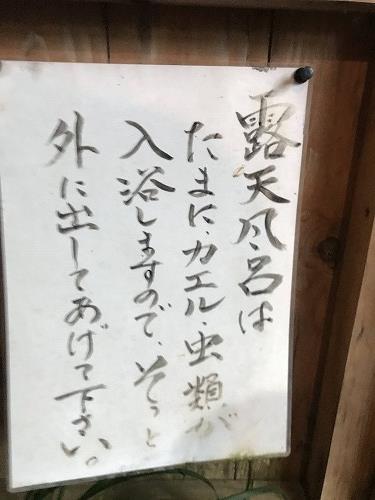 露天風呂は
たまに、カエル・虫類が
入浴しますので、そぅっと
外に出してあげて下さい。